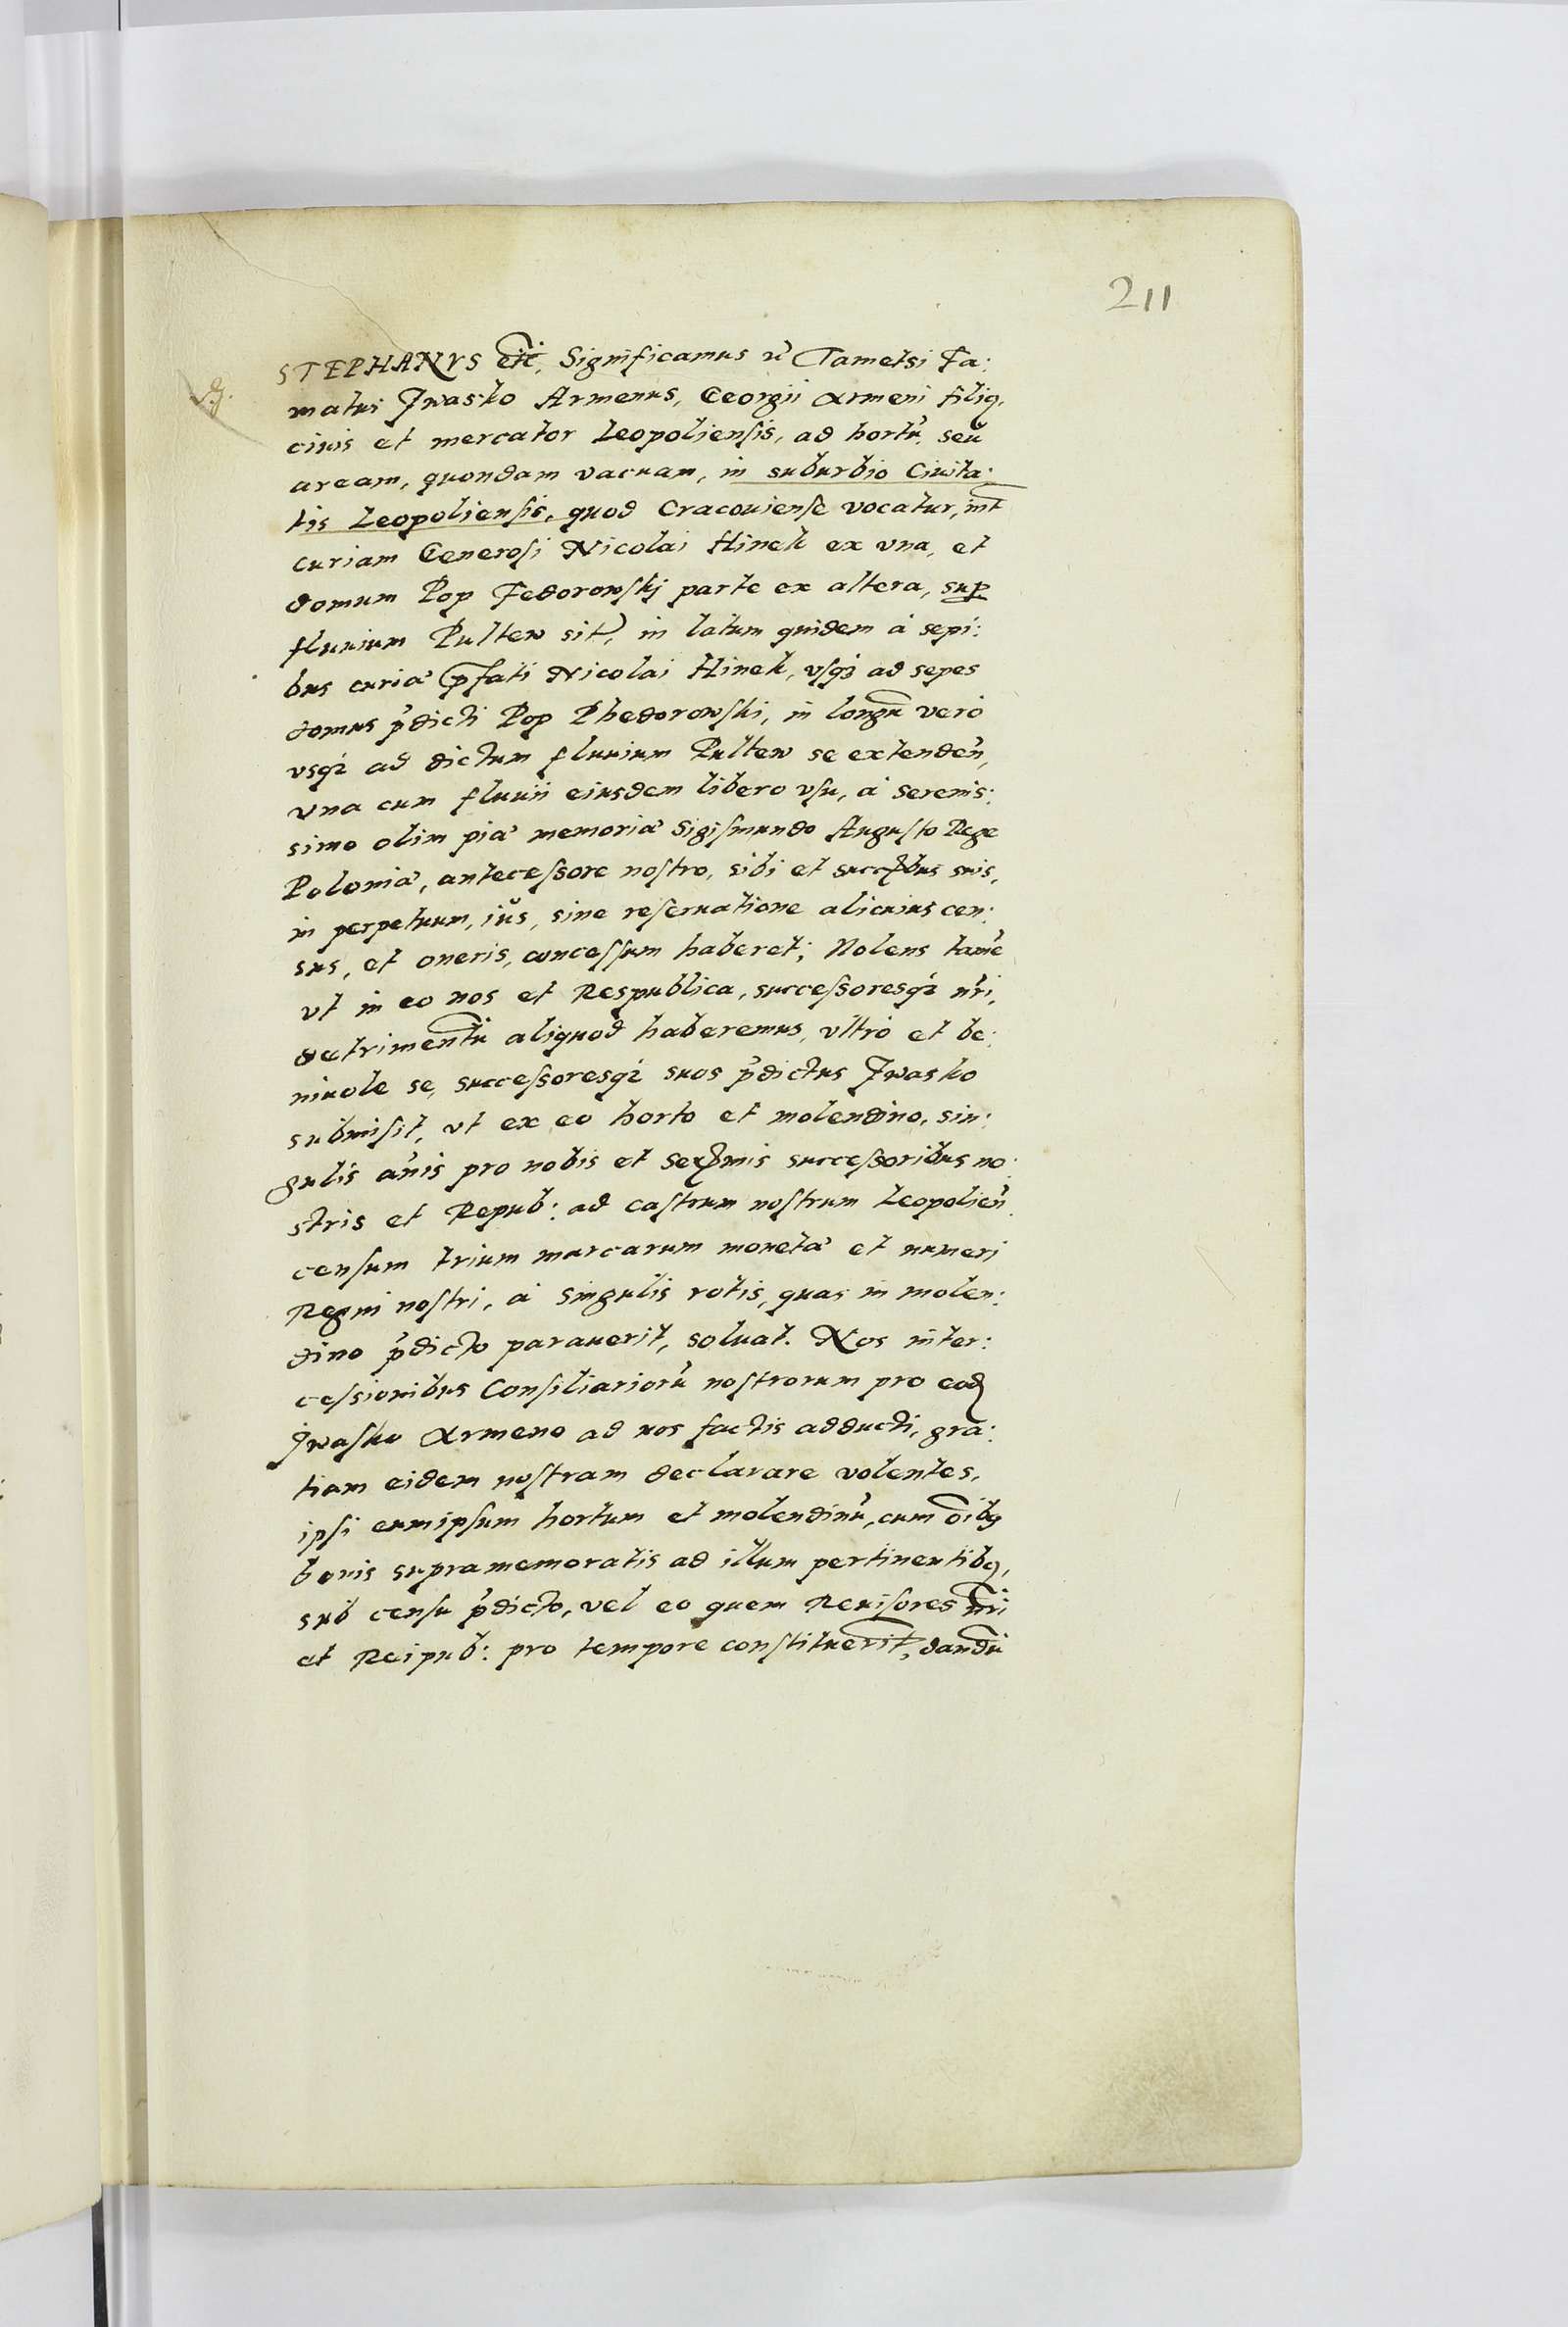 211
STEPHANVS etc, Significamus &c Tametsi Fa:
matus Jwasko Armenus, Georgii Armeni filiꝯ,
ciuis et mercator Leopoliensis, ad hortũ seu
aream, quondam vacuam, in suburbio Ciuita:
tis Leopoliensis, quod Cracouiense vocatur, int̃
curiam Generosi Nicolai Hinek ex vna, et
domum Pop Fedorowskj parte ex altera, suꝑ
fluuium Pultew sit̃, in latum quidem à sepi:
bus curiæ p̃fati Nicolai Hinek, vsqꝫ ad sepes
domus p̃dicti Pop Phedorowski, in longũ verò
vsqꝫ ad dictum fluuium Pultew se extendeñ,
vna cum fluuii eiusdem libero vsu, à Serenis:
simo olim piæ memoriæ Sigismundo Augusto Rege
Poloniæ, antecessore nostro, sibi et succẽbus suis,
in perpetuum, ius, sine reseruatione alicuius cen:
sus, et oneris, concessum haberet; Nolens tamẽ
vt in eo nos et Respublica, successoresqꝫ nr̃i,
detrimentũ aliquod haberemus, vltrò et be:
niuole se, successoresqꝫ suos p̃dictus Jwasko
submisit, vt ex eo horto et molendino, sin:
gulis añis pro nobis et Serẽmis successoribus no:
stris et Repub: ad castrum nostrum Leopolieñ
censum trium marcarum monetæ et numeri
Regni nostri, à singulis rotis, quas in molen:
dino p̃dicto parauerit, soluat. Nos inter:
cessionibus Consiliariorũ nostrorum pro eod̃
Jwasko Armeno ad nos factis adducti, gra:
tiam eidem nostram declarare volentes,
ipsi eumipsum hortum et molendinũ, cum õibꝯ
bonis supramemoratis ad illum pertinentibꝯ,
sub censu p̃dicto, vel eo quem Reuisores nr̃i
et Reipub: pro tempore constituerit̃, dandũ